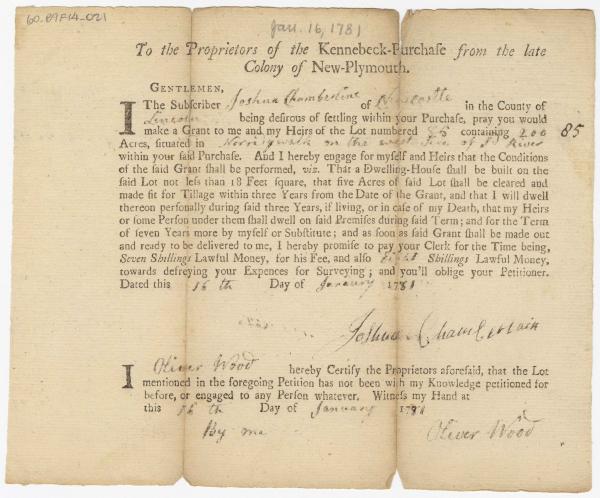 60.P9F14-021
Jan. 16, 1781
To the Proprietors of the Kennebeck-Purchaſe from the late
Colony of New-Plymouth.
GENTLEMEN,
I The Subſcriber Joshua Chamberline of Newcastle in the County of
Lincoln being deſirous of ſettling within your Purchaſe, pray you would
make a Grant to me and my Heirs of the Lot numbered 85 containing 200 85
Acres, ſituated in Norridgwalk on the west side of sd River
within your ſaid Purchaſe. And I hereby engage for myſelf and Heirs that the Conditions
of the ſaid Grant ſhall be performed, viz. That a Dwelling-Houſe ſhall be built on the
ſaid Lot not leſs than 18 Feet ſquare, that five Acres of ſaid Lot ſhall be cleared and
made fit for Tillage within three Years from the Date of the Grant, and that I will dwell
thereon perſonally during ſaid three Years, if living, or in caſe of my Death, that my Heirs
or ſome Perſon under them ſhall dwell on ſaid Premiſes during ſaid Term; and for the Term
of ſeven Years more by myſelf or Subſtitute; and as ſoon as ſaid Grant ſhall be made out
and ready to be delivered to me, I hereby promiſe to pay your Clerk for the Time being,
Seven Shillings Lawful Money, for his Fee, and alſo Eight Shillings Lawful Money,
towards defreying your Expences for Surveying; and you'll oblige your Petitioner.
Dated this 16th Day of January 1781
Joshua Chamberlain
I Oliver Wood hereby Certify the Proprietors aforeſaid, that the Lot
mentioned in the foregoing Petition has not been with my Knowledge petitioned for
before, or engaged to any Perſon whatever. Witneſs my Hand at
this 16th Day of January 1781
By me Oliver Wood